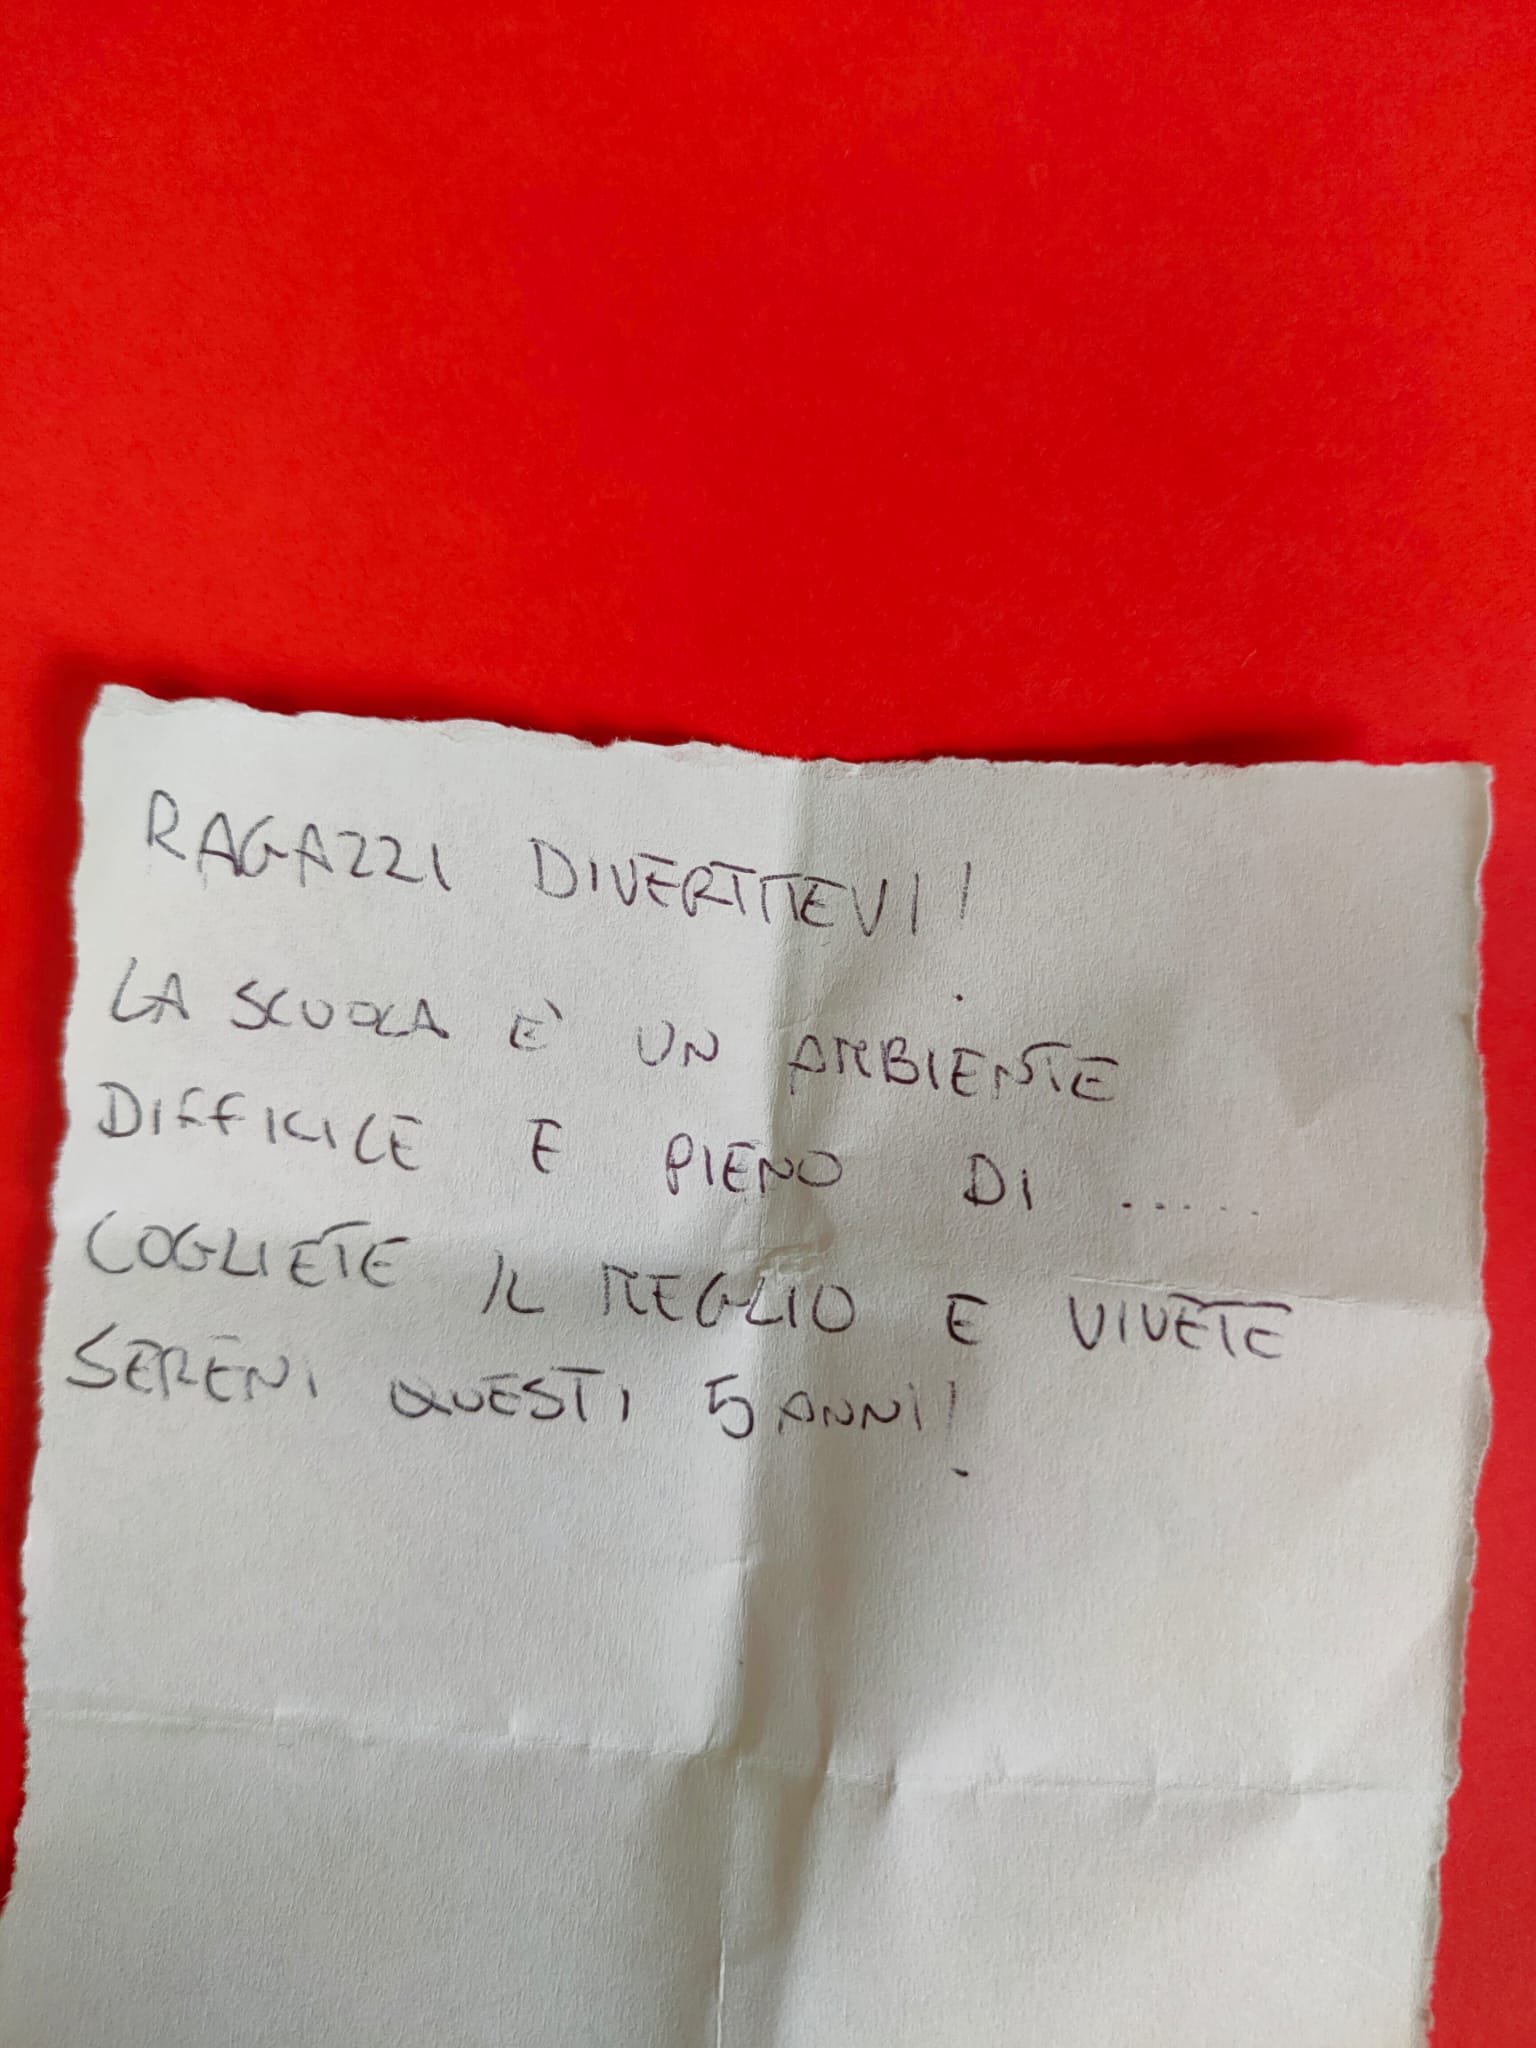 RAGAZZI DIVERTITEVI!
LA SCUOLA E' UN AMBIENTE
DIFFICILE E PIENO DI ......
COGLIETE IL MEGLIO E VIVETE
SERENI QUESTI 5 ANNI!